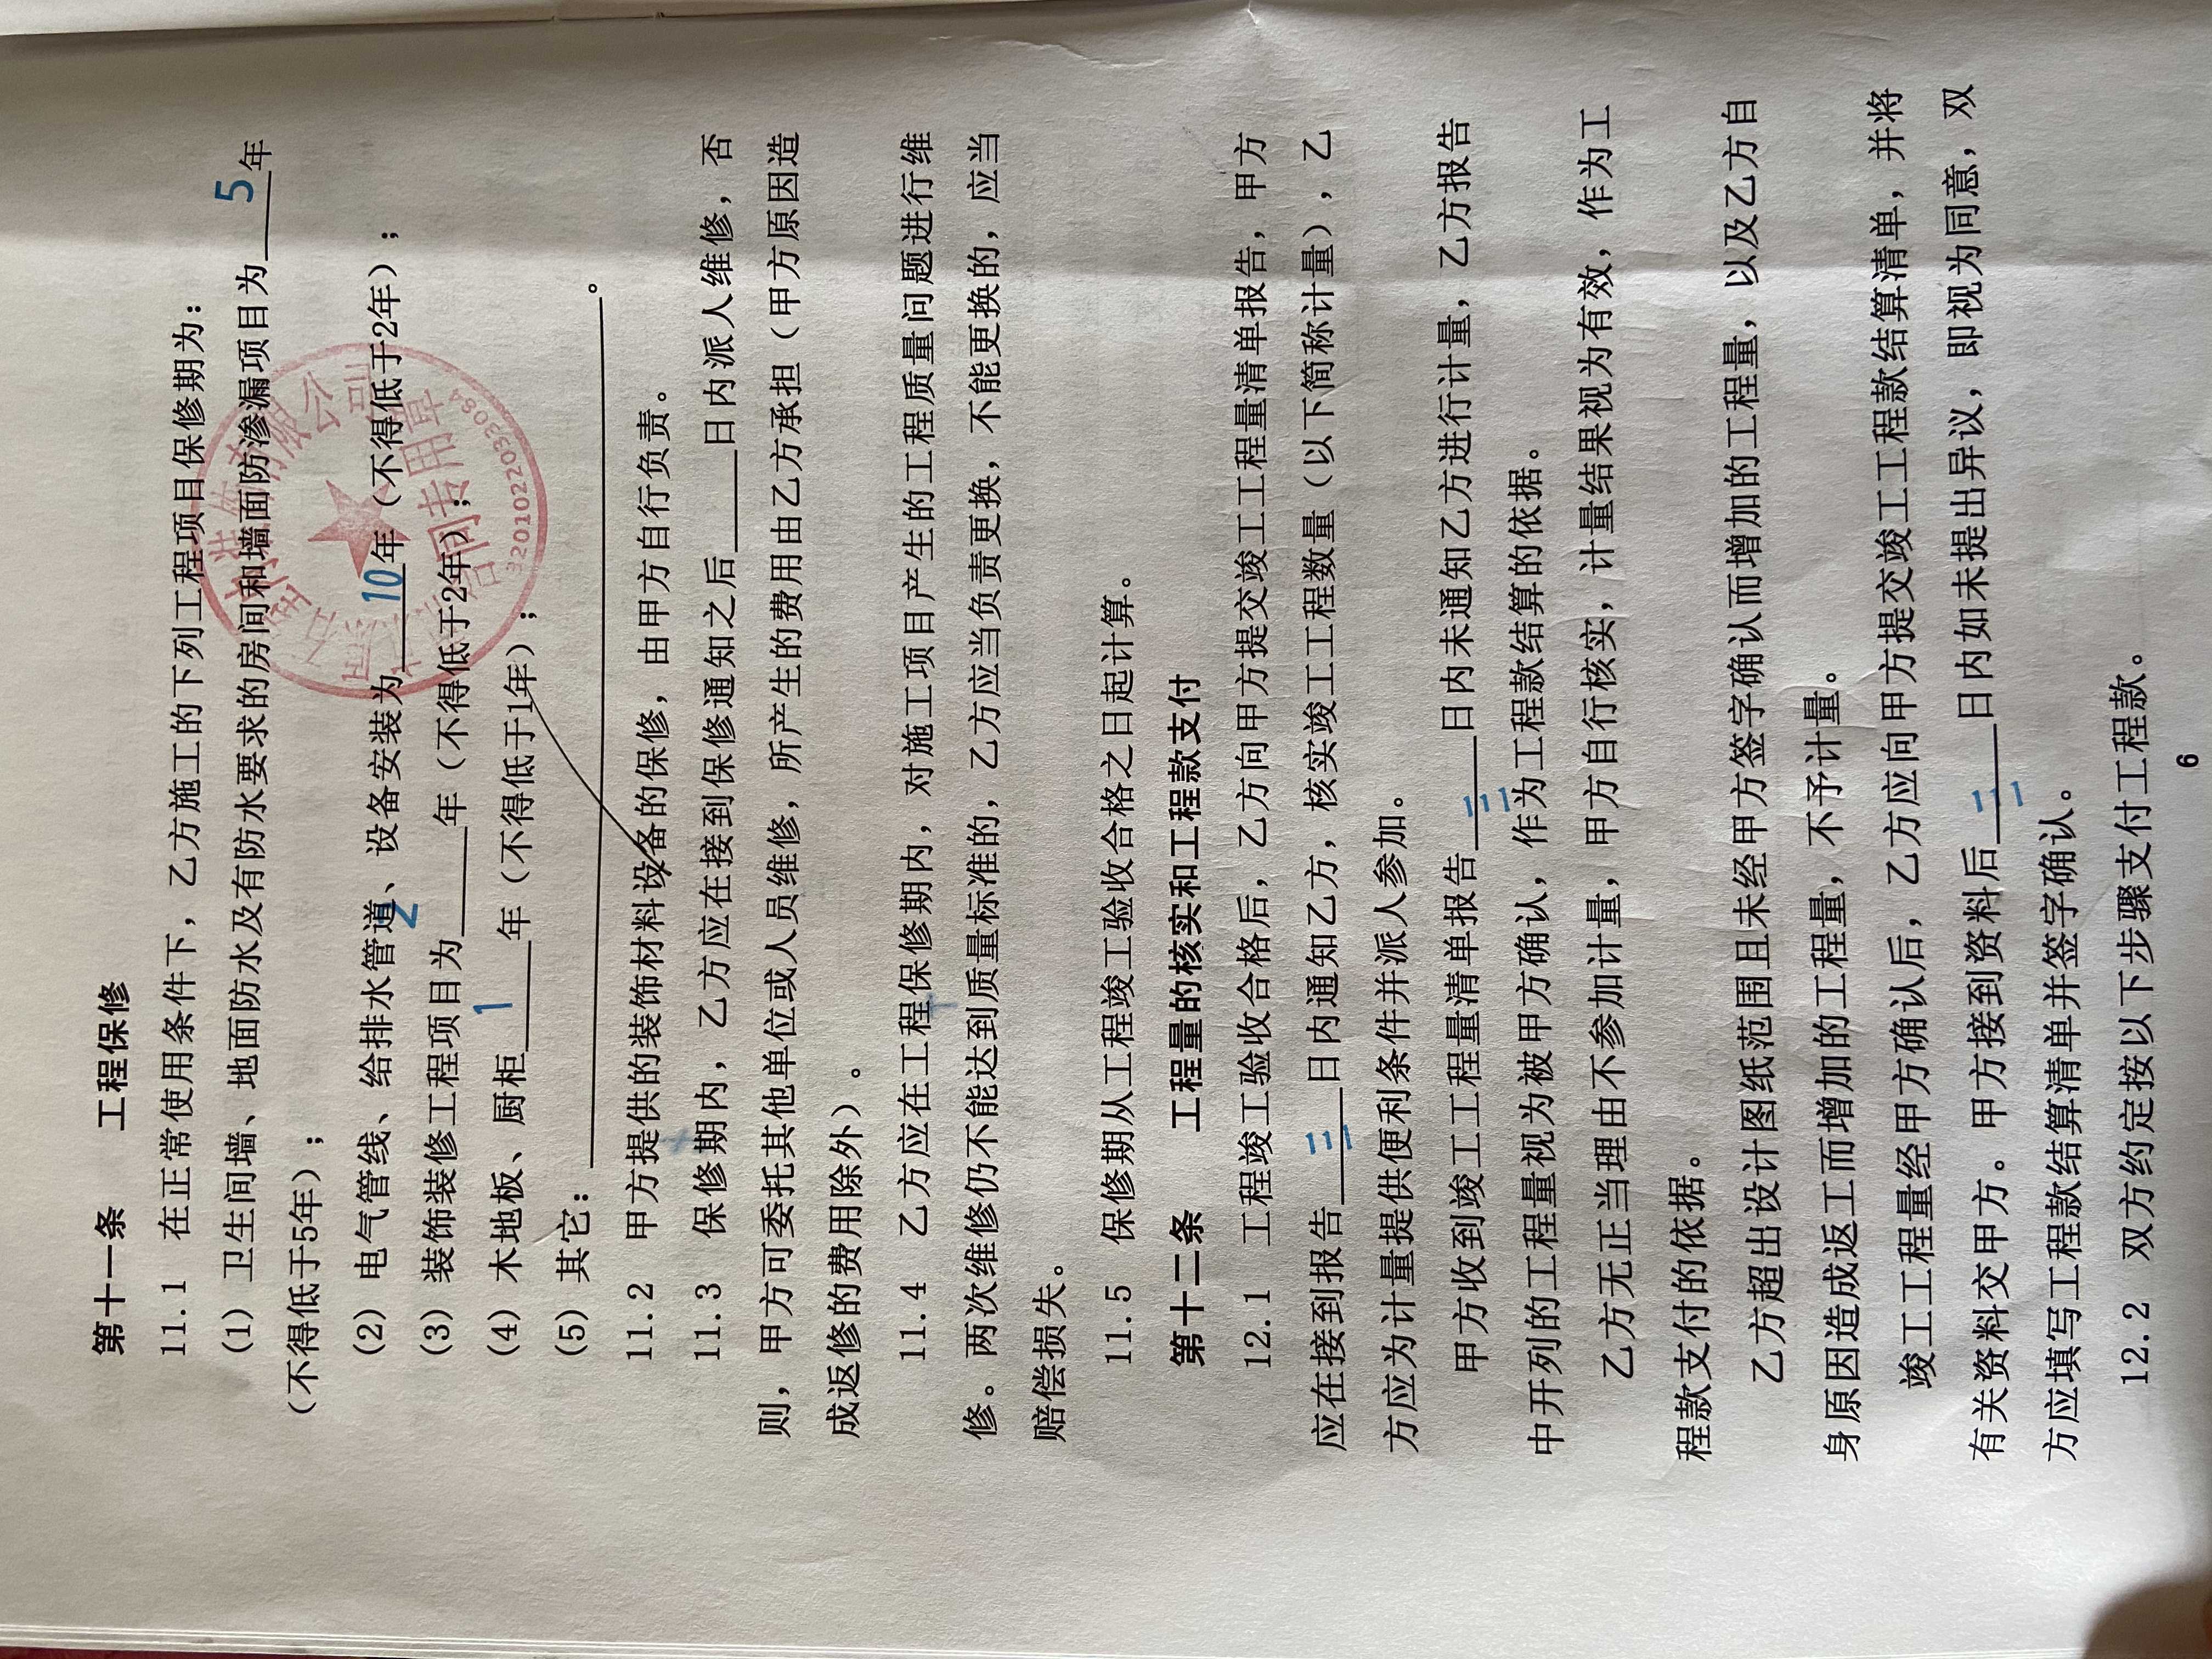 第十一条　工程保修
11.1 在正常使用条件下，乙方施工的下列工程项目保修期为：
（1）卫生间墙、地面防水及有防水要求的房间和墙面防渗漏项目为 5 年
（不得低于5年）；
（2）电气管线、给排水管道、设备安装为 10 年（不得低于2年）；
（3）装饰装修工程项目为 2 年（不得低于2年）；
（4）木地板、厨柜 1 年（不得低于1年）；
（5）其它：。
11.2 甲方提供的装饰材料设备的保修，由甲方自行负责。
11.3 保修期内，乙方应在接到保修通知之后____日内派人维修，否
则，甲方可委托其他单位或人员维修，所产生的费用由乙方承担（甲方原因造
成返修的费用除外）。
11.4 乙方应在工程保修期内，对施工项目产生的工程质量问题进行维
修。两次维修仍不能达到质量标准的，乙方应当负责更换，不能更换的，应当
赔偿损失。
11.5 保修期从工程竣工验收合格之日起计算。
第十二条　工程量的核实和工程款支付
12.1 工程竣工验收合格后，乙方向甲方提交竣工工程量清单报告，甲方
应在接到报告 三 日内通知乙方，核实竣工工程数量（以下简称计量），乙
方应为计量提供便利条件并派人参加。
甲方收到竣工工程量清单报告 三 日内未通知乙方进行计量，乙方报告
中开列的工程量视为被甲方确认，作为工程款结算的依据。
乙方无正当理由不参加计量，甲方自行核实，计量结果视为有效，作为工
程款支付的依据。
乙方超出设计图纸范围且未经甲方签字确认而增加的工程量，以及乙方自
身原因造成返工而增加的工程量，不予计量。
竣工工程量经甲方确认后，乙方应向甲方提交竣工工程款结算清单，并将
有关资料交甲方。甲方接到资料后 三 日内如未提出异议，即视为同意，双
方应填写工程款结算清单并签字确认。
12.2 双方约定按以下步骤支付工程款。
6
合同专用章
3201022033084